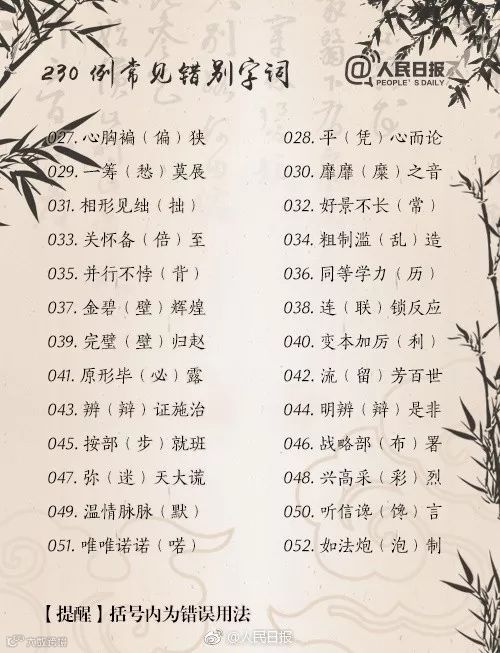 230例常见错别字词
@人民日报
PEOPLE'S DAILY
027. 心胸褊（偏）狭
028. 平（凭）心而论
029. 一筹（愁）莫展
030. 靡靡（糜）之音
031. 相形见绌（拙）
032. 好景不长（常）
033. 关怀备（倍）至
034. 粗制滥（乱）造
035. 并行不悖（背）
036. 同等学力（历）
037. 金碧（壁）辉煌
038. 连（联）锁反应
039. 完璧（壁）归赵
040. 变本加厉（利）
041. 原形毕（必）露
042. 流（留）芳百世
043. 辨（辩）证施治
044. 明辨（辩）是非
045. 按部（步）就班
046. 战略部（布）署
047. 弥（迷）天大谎
048. 兴高采（彩）烈
049. 温情脉脉（默）
050. 听信谗（馋）言
051. 唯唯诺诺（喏）
052. 如法炮（泡）制
【提醒】括号内为错误用法
@人民日报